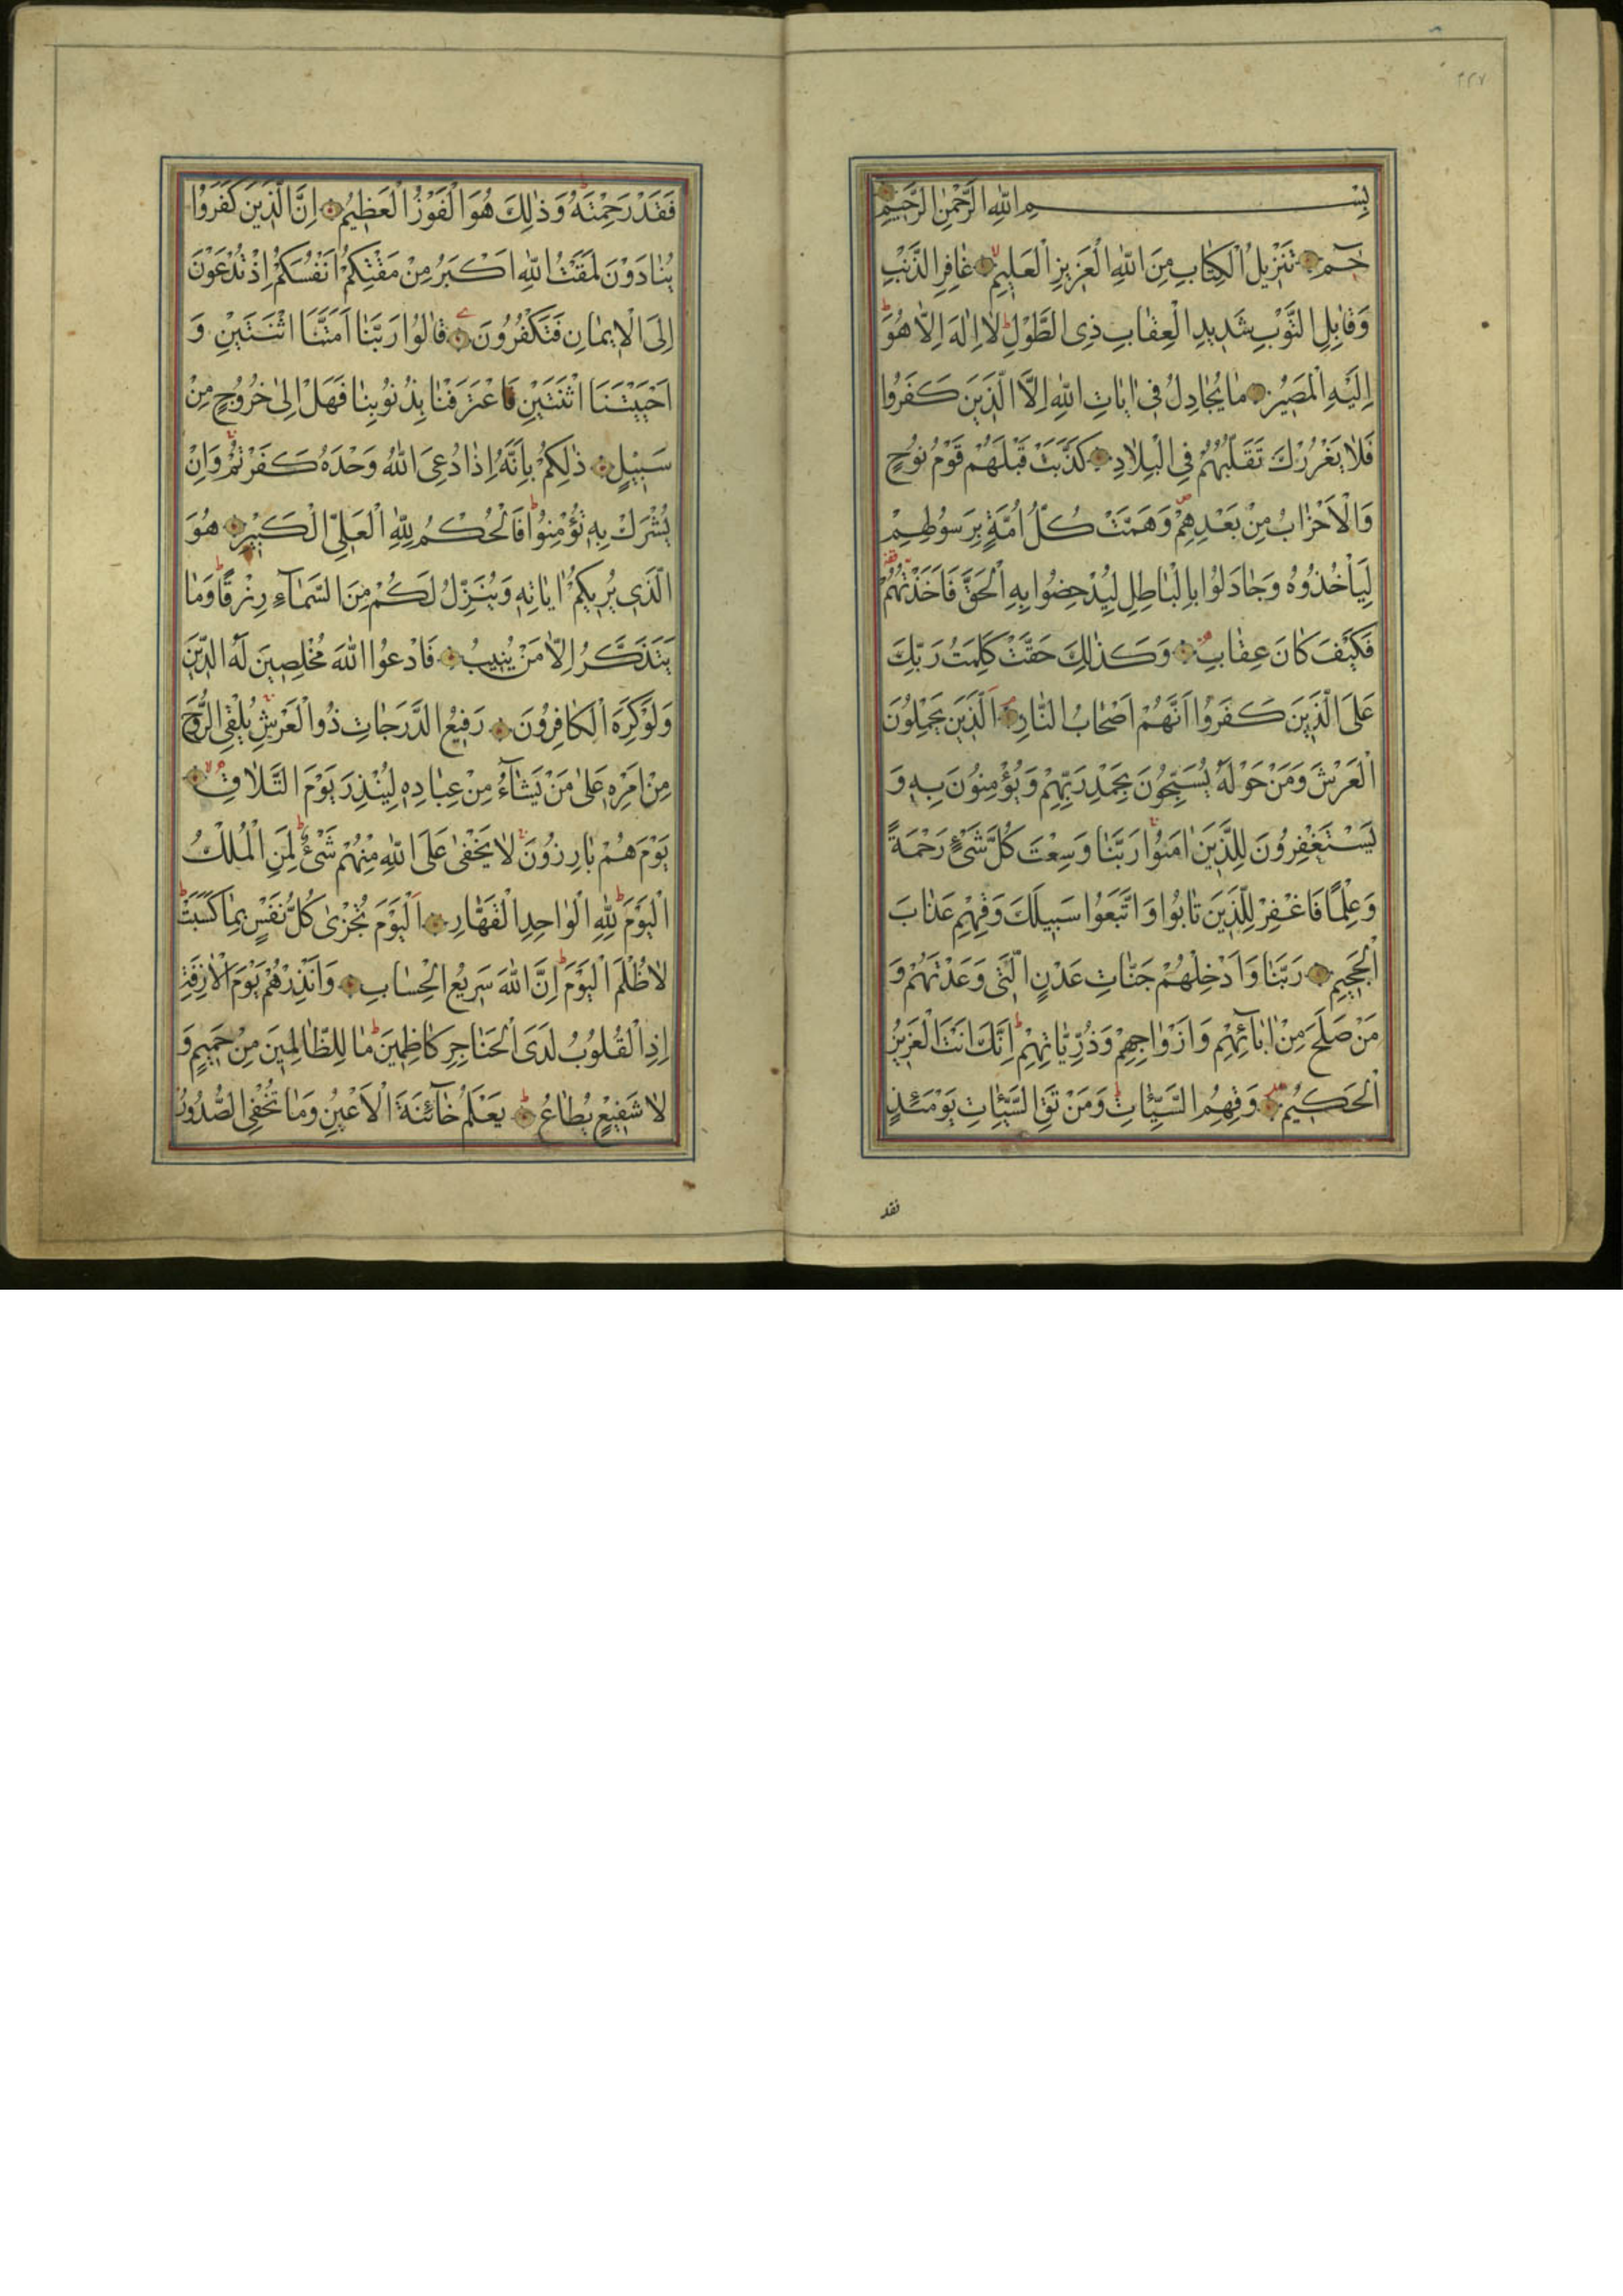 ٢٢٧
بِسْمِ اللهِ الرَّحْمٰنِ الرَّحِيمِ
حٰمٓ تَنْزِيلُ الْكِتٰابِ مِنَ اللهِ الْعَزِيزِ الْعَلِيمِ غٰافِرِ الذَّنْبِ
وَقٰابِلِ التَّوْبِ شَدِيدِ الْعِقٰابِ ذِى الطَّوْلِ لٰا اِلٰهَ اِلّٰا هُوَ
اِلَيْهِ الْمَصِيرُ مٰا يُجٰادِلُ فِى اٰيٰاتِ اللهِ اِلَّا الَّذِينَ كَفَرُوا
فَلٰا يَغْرُرْكَ تَقَلُّبُهُمْ فِى الْبِلٰادِ كَذَّبَتْ قَبْلَهُمْ قَوْمُ نُوحٍ
وَالْاَحْزٰابُ مِنْ بَعْدِهِمْ وَهَمَّتْ كُلُّ اُمَّةٍ بِرَسُولِهِمْ
لِيَأْخُذُوهُ وَجٰادَلُوا بِالْبٰاطِلِ لِيُدْحِضُوا بِهِ الْحَقَّ فَاَخَذْتُهُمْ
فَكَيْفَ كٰانَ عِقٰابِ وَكَذٰلِكَ حَقَّتْ كَلِمَتُ رَبِّكَ
عَلَى الَّذِينَ كَفَرُوا اَنَّهُمْ اَصْحٰابُ النّٰارِ اَلَّذِينَ يَحْمِلُونَ
الْعَرْشَ وَمَنْ حَوْلَهُ يُسَبِّحُونَ بِحَمْدِ رَبِّهِمْ وَيُؤْمِنُونَ بِهِ وَ
يَسْتَغْفِرُونَ لِلَّذِينَ اٰمَنُوا رَبَّنٰا وَسِعْتَ كُلَّ شَىْءٍ رَحْمَةً
وَعِلْمًا فَاغْفِرْ لِلَّذِينَ تٰابُوا وَاتَّبَعُوا سَبِيلَكَ وَقِهِمْ عَذٰابَ
الْجَحِيمِ رَبَّنٰا وَاَدْخِلْهُمْ جَنّٰاتِ عَدْنٍ الَّتِى وَعَدْتَهُمْ وَ
مَنْ صَلَحَ مِنْ اٰبٰآئِهِمْ وَاَزْوٰاجِهِمْ وَذُرِّيّٰاتِهِمْ اِنَّكَ اَنْتَ الْعَزِيزُ
الْحَكِيمُ وَقِهِمُ السَّيِّئٰاتِ وَمَنْ تَقِ السَّيِّئٰاتِ يَوْمَئِذٍ
فقد
فَقَدْ رَحِمْتَهُ وَذٰلِكَ هُوَ الْفَوْزُ الْعَظِيمُ اِنَّ الَّذِينَ كَفَرُوا
يُنٰادَوْنَ لَمَقْتُ اللهِ اَكْبَرُ مِنْ مَقْتِكُمْ اَنْفُسَكُمْ اِذْ تُدْعَوْنَ
اِلَى الْاِيمٰانِ فَتَكْفُرُونَ قٰالُوا رَبَّنٰا اَمَتَّنَا اثْنَتَيْنِ وَ
اَحْيَيْتَنَا اثْنَتَيْنِ فَاعْتَرَفْنٰا بِذُنُوبِنٰا فَهَلْ اِلٰى خُرُوجٍ مِنْ
سَبِيلٍ ذٰلِكُمْ بِاَنَّهُ اِذٰا دُعِىَ اللهُ وَحْدَهُ كَفَرْتُمْ وَاِنْ
يُشْرَكْ بِهِ تُؤْمِنُوا فَالْحُكْمُ لِلّٰهِ الْعَلِىِّ الْكَبِيرِ هُوَ
الَّذِى يُرِيكُمْ اٰيٰاتِهِ وَيُنَزِّلُ لَكُمْ مِنَ السَّمٰآءِ رِزْقًا وَمٰا
يَتَذَكَّرُ اِلّٰا مَنْ يُنِيبُ فَادْعُوا اللهَ مُخْلِصِينَ لَهُ الدِّينَ
وَلَوْ كَرِهَ الْكٰافِرُونَ رَفِيعُ الدَّرَجٰاتِ ذُوا الْعَرْشِ يُلْقِى الرُّوحَ
مِنْ اَمْرِهِ عَلٰى مَنْ يَشٰآءُ مِنْ عِبٰادِهِ لِيُنْذِرَ يَوْمَ التَّلٰاقِ
يَوْمَ هُمْ بٰارِزُونَ لٰا يَخْفٰى عَلَى اللهِ مِنْهُمْ شَىْءٌ لِمَنِ الْمُلْكُ
الْيَوْمَ لِلّٰهِ الْوٰاحِدِ الْقَهّٰارِ اَلْيَوْمَ تُجْزٰى كُلُّ نَفْسٍ بِمٰا كَسَبَتْ
لٰا ظُلْمَ الْيَوْمَ اِنَّ اللهَ سَرِيعُ الْحِسٰابِ وَاَنْذِرْهُمْ يَوْمَ الْاٰزِفَةِ
اِذِ الْقُلُوبُ لَدَى الْحَنٰاجِرِ كٰاظِمِينَ مٰا لِلظّٰالِمِينَ مِنْ حَمِيمٍ وَ
لٰا شَفِيعٍ يُطٰاعُ يَعْلَمُ خٰآئِنَةَ الْاَعْيُنِ وَمٰا تُخْفِى الصُّدُورُ